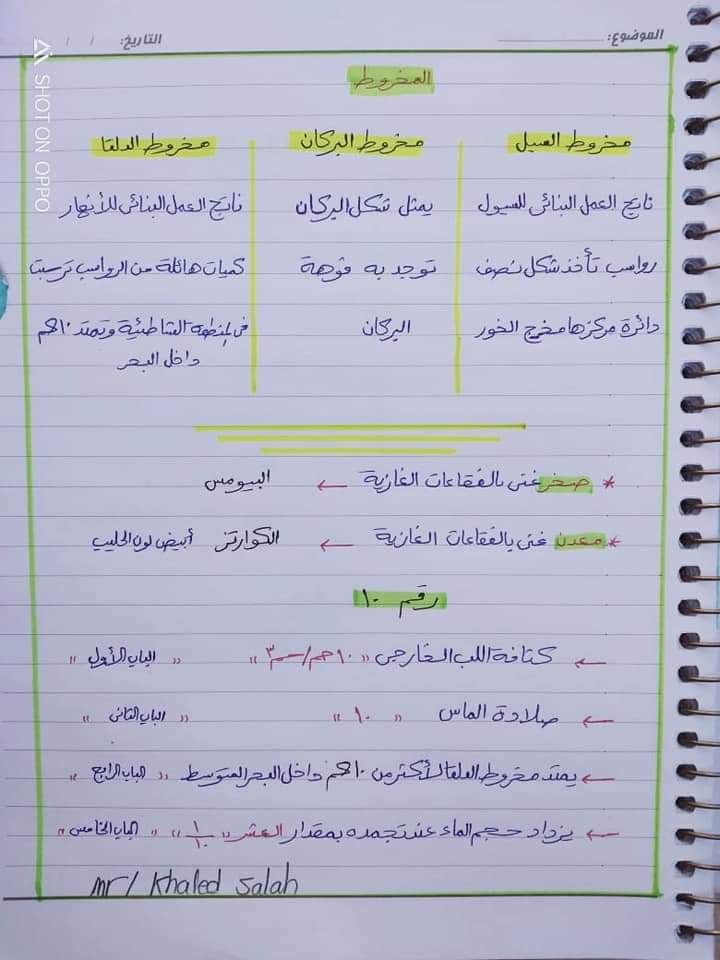 الموضوع:
التاريخ: / /
المخروط
مخروط السيل
ناتج العمل البنائى للسيول
رواسب تأخذ شكل نصف
دائرة مركزها مخرج الخور
مخروط البركان
يمثل شكل البركان
توجد به فوهة
البركان
مخروط الدلتا
ناتج العمل البنائى للأنهار
كميات هائلة من الرواسب ترسبت
فى المنطقة الشاطئية وتمتد ١٠ كم
داخل البحر
* صخر غنى بالفقاعات الغازية ← البيومس
* معدن غنى بالفقاعات الغازية ← الكوارتز أبيض لون الحليب
رقم ١٠
← كثافة اللب الخارجى "١٠ جم/سم٣" "الباب الأول"
← صلادة الماس "١٠" "الباب الثانى"
← يمتد مخروط الدلتا لأكثر من ١٠ كم داخل البحر المتوسط "الباب الرابع"
← يزداد حجم الماء عند تجمده بمقدار العشر "١/١٠" "الباب الخامس"
mr/ Khaled Salah
SHOT ON OPPO